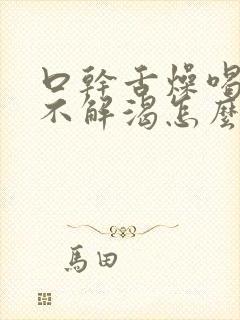 口幹舌燥喝
不解渴怎麽
馬田